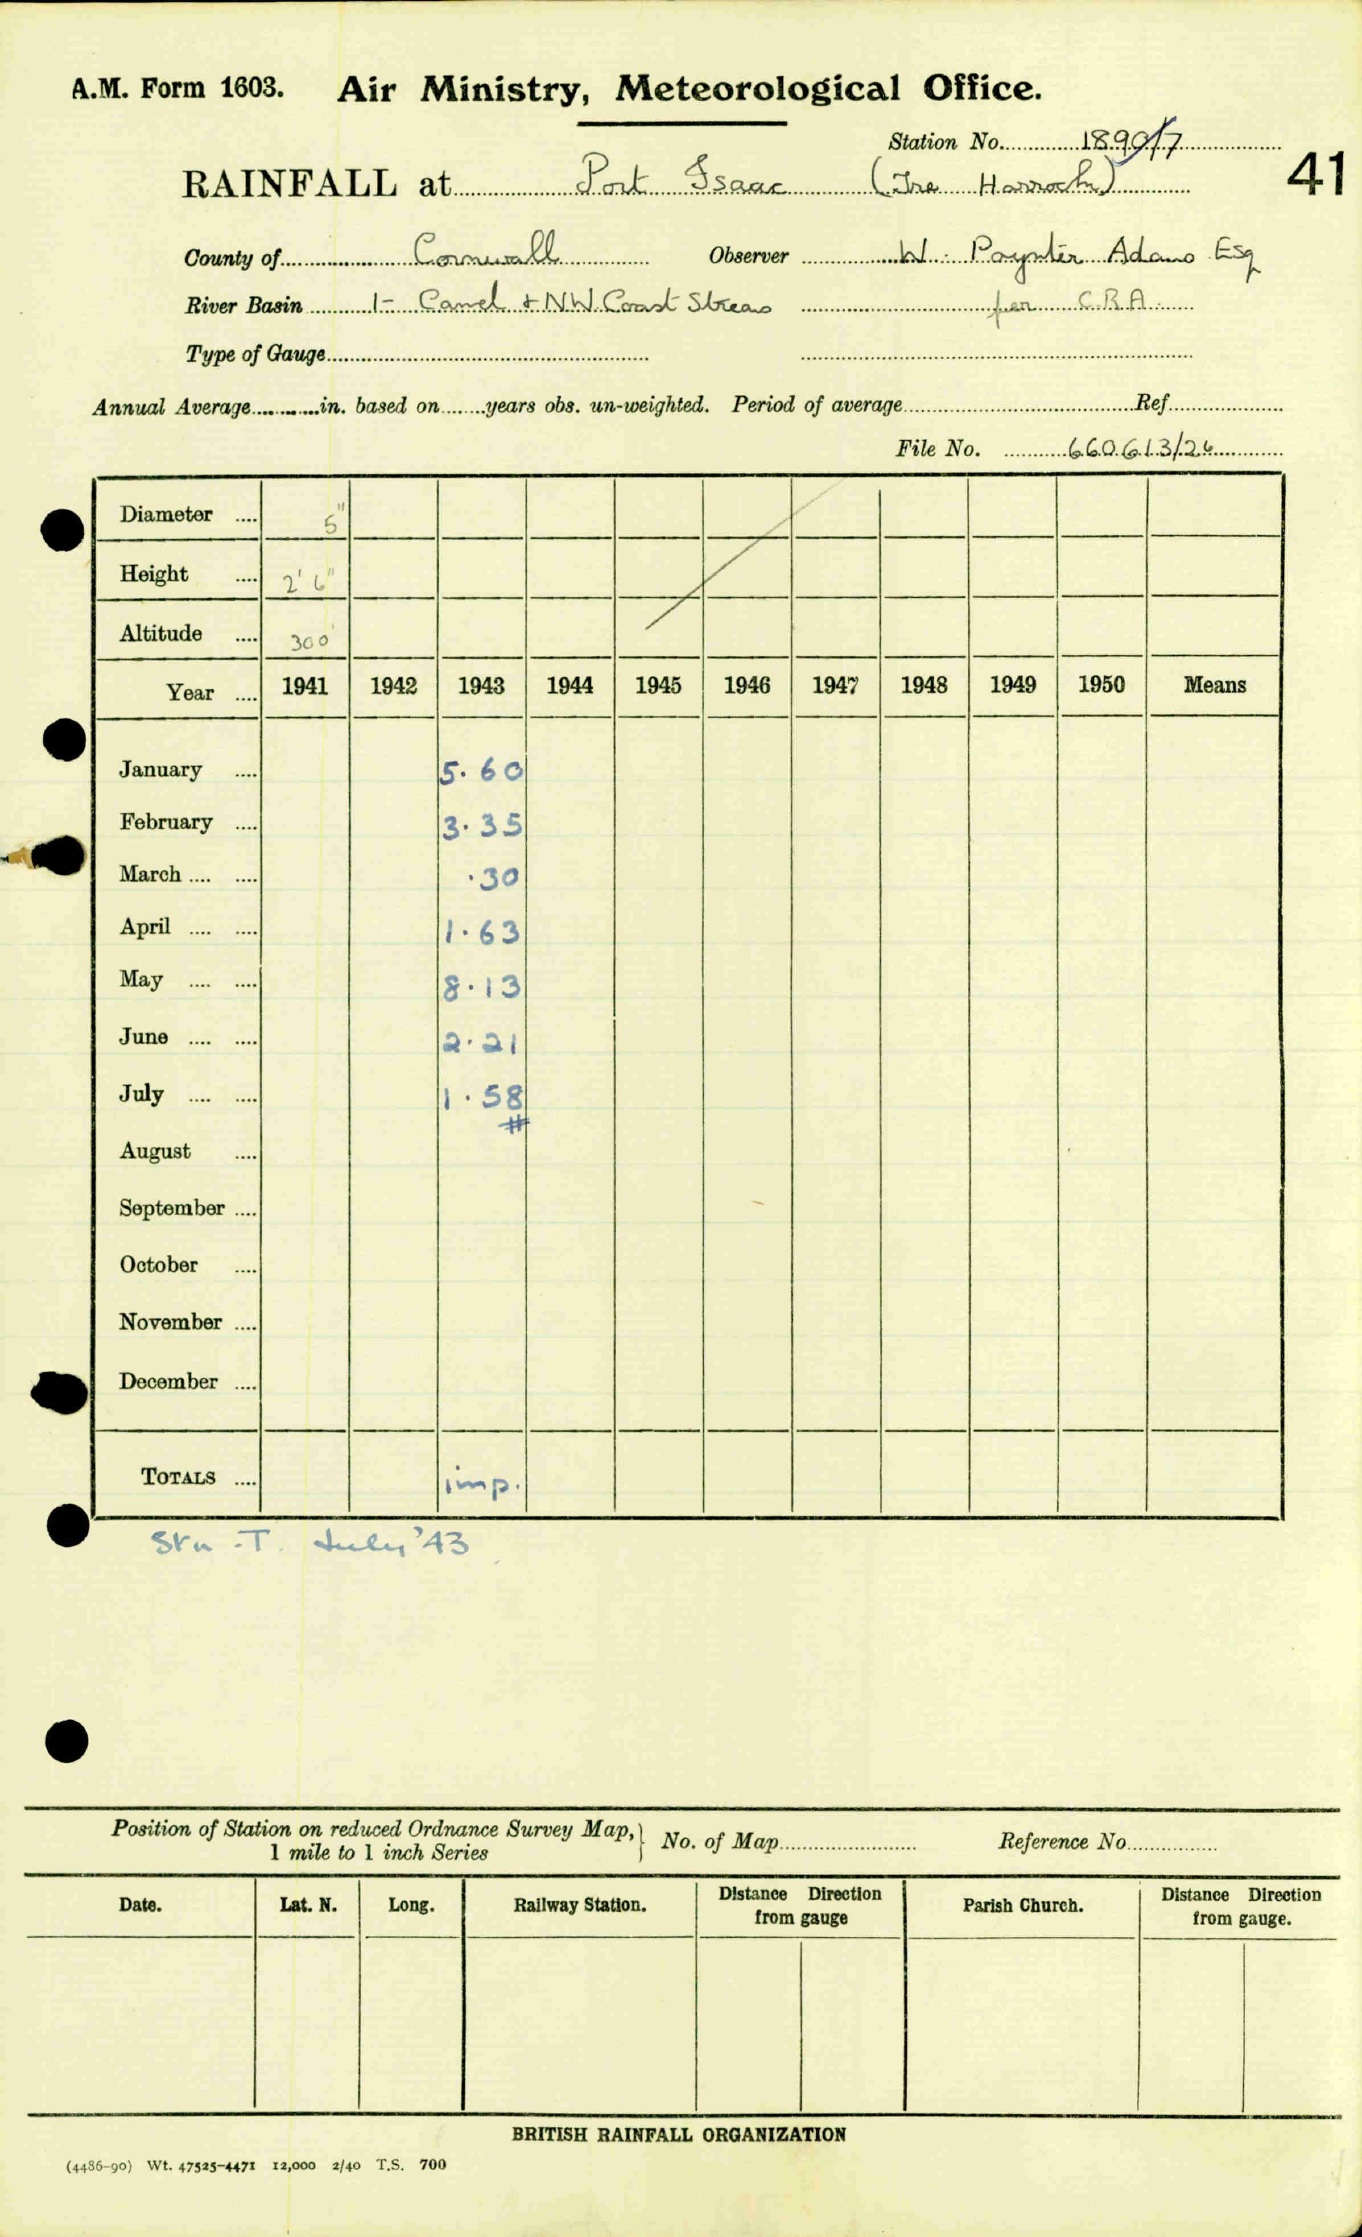 A.M. Form 1603. Air Ministry, Meteorological Office.
Station No. 1890/7
RAINFALL at Port Isaac (Tre Harrock) 41
County of Cornwall Observer W. Poynter Adams Esq
River Basin 1- Camel + NW. Coast Streams per C.R.A.
Type of Gauge
Annual Average in. based on years obs. un-weighted. Period of average Ref.
File No. 660613/26
Diameter .... 5"
Height .... 2' 6"
Altitude .... 300'
Year .... 1941 1942 1943 1944 1945 1946 1947 1948 1949 1950 Means
January .... 5.60
February .... 3.35
March .... .... .30
April .... .... 1.63
May .... .... 8.13
June .... .... 2.21
July .... .... 1.58
#
August ....
September ....
October ....
November ....
December ....
TOTALS .... imp.
Stn .T. July '43
Position of Station on reduced Ordnance Survey Map, } No. of Map Reference No.
1 mile to 1 inch Series
Date. Lat. N. Long. Railway Station. Distance Direction from gauge Parish Church. Distance Direction from gauge.
BRITISH RAINFALL ORGANIZATION
(4486-90) Wt. 47525-4471 12,000 2/40 T.S. 700